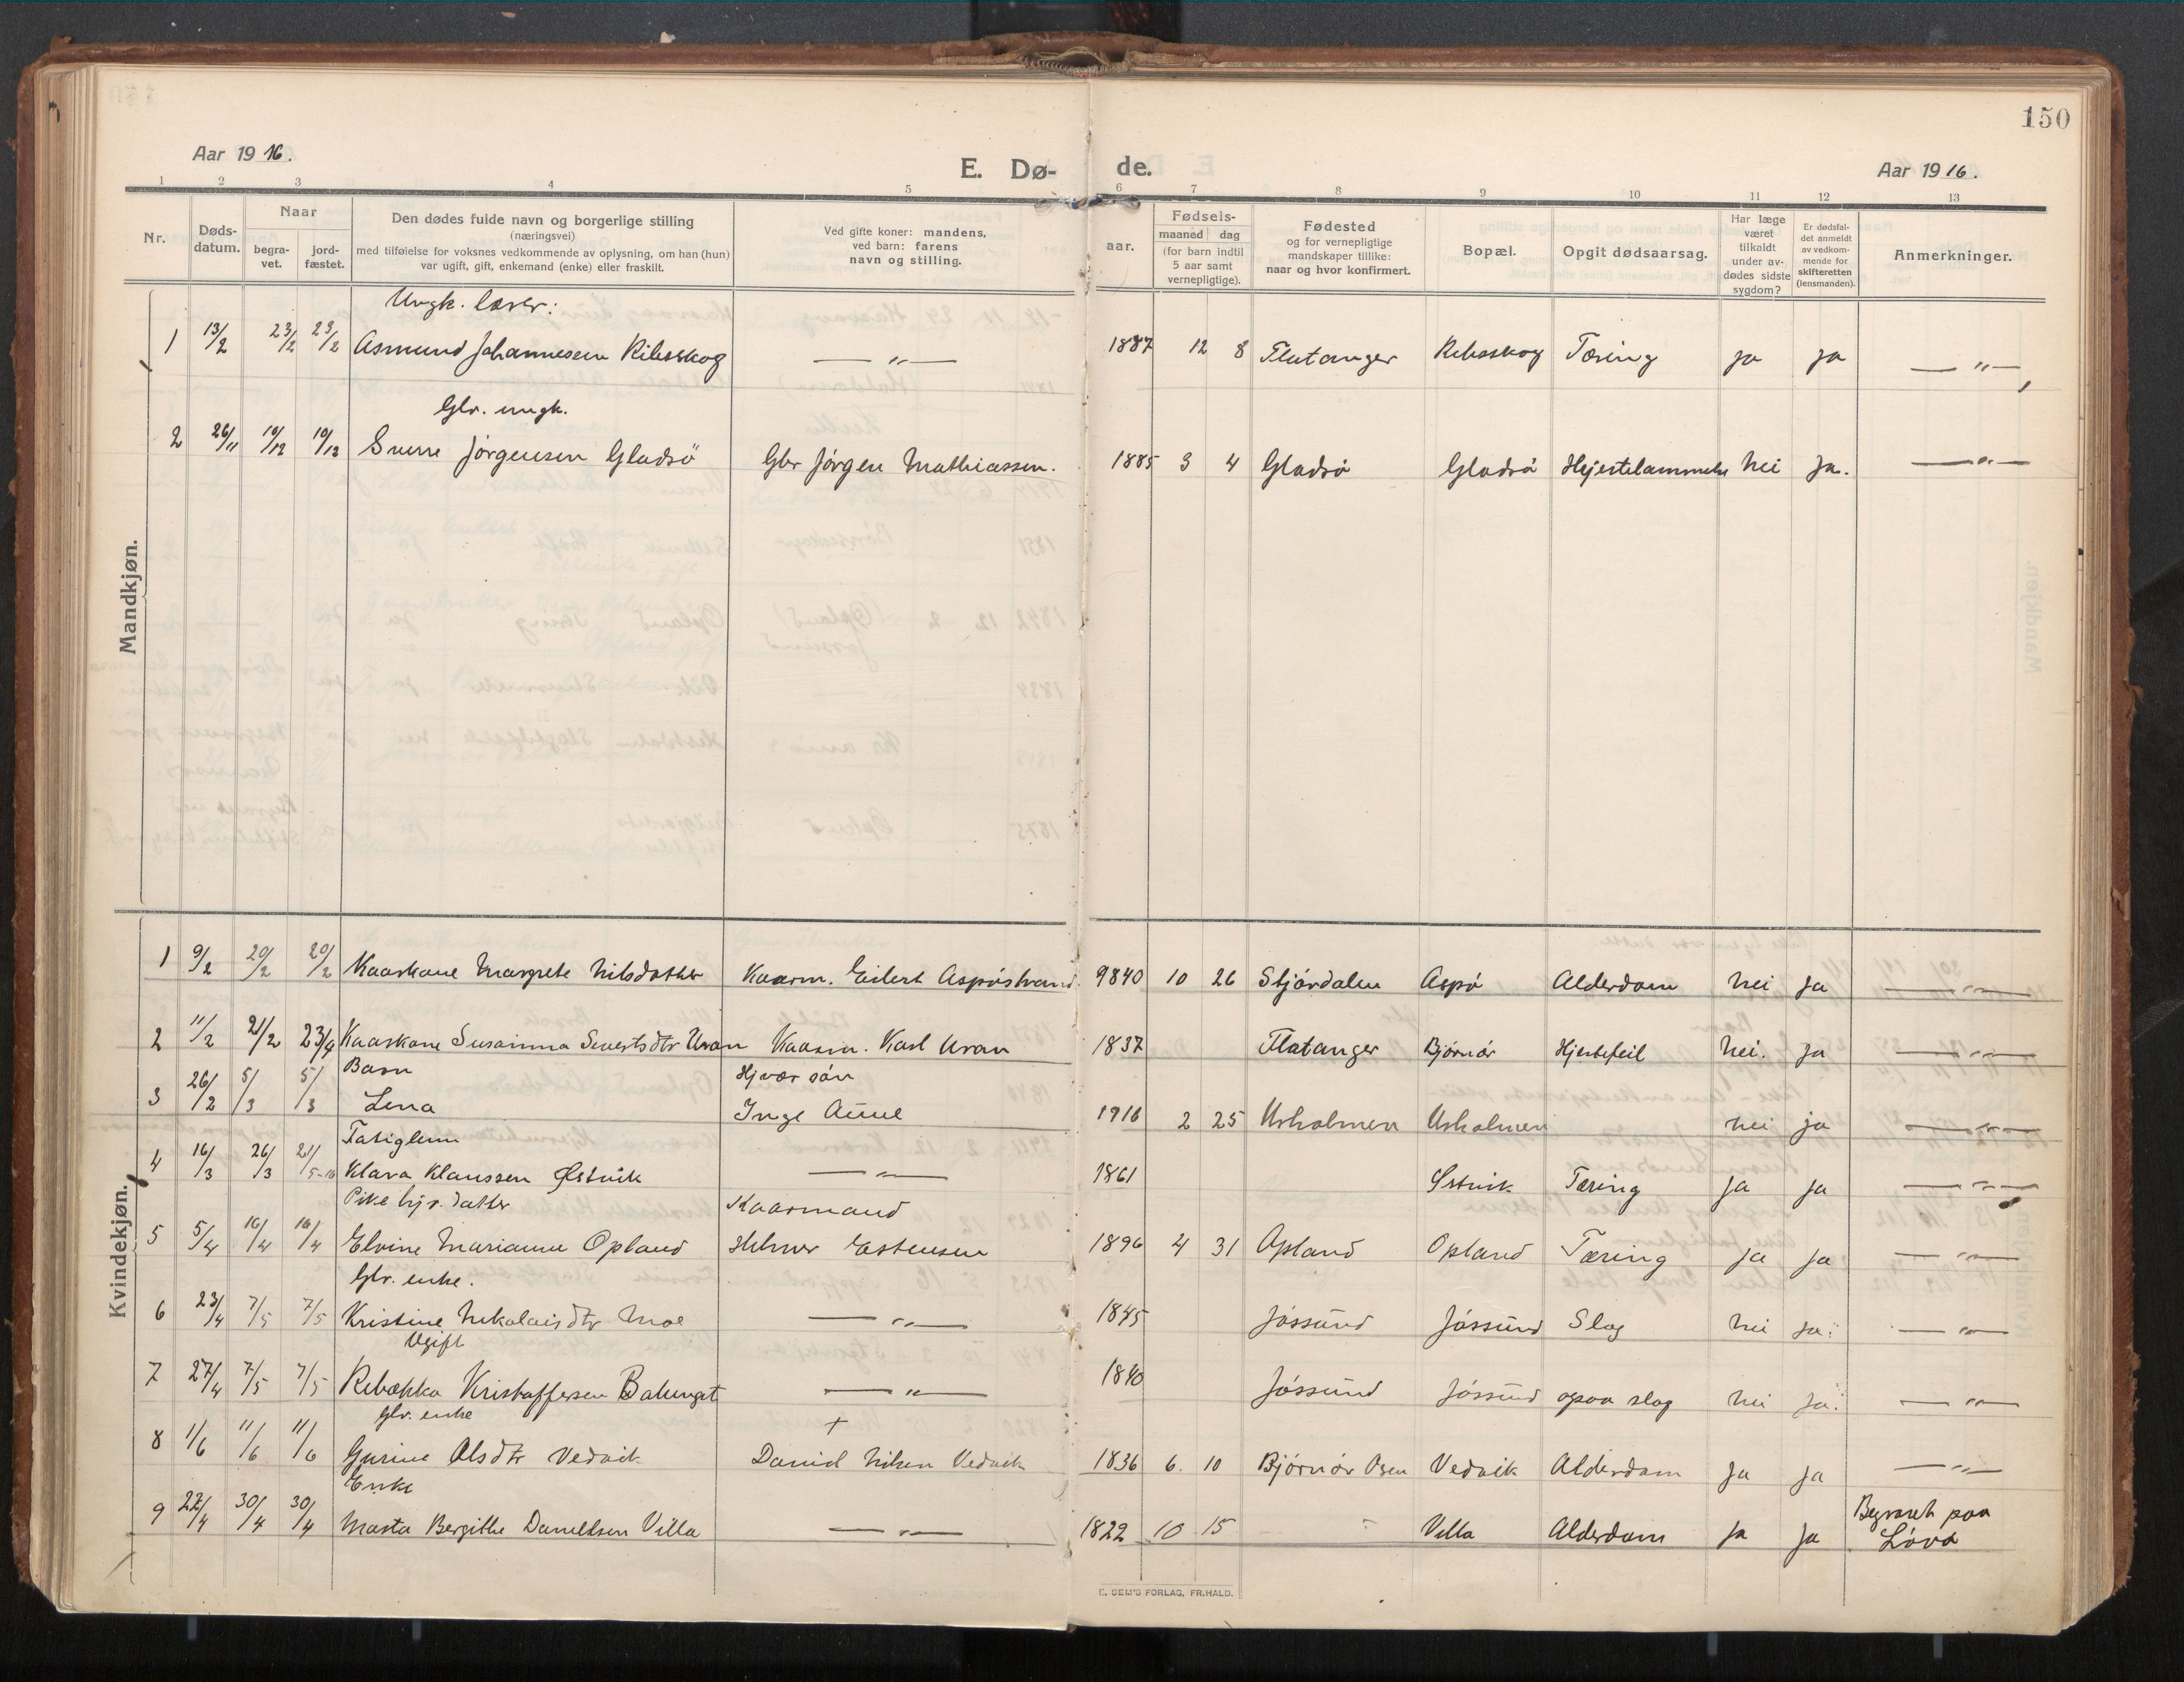 150
Aar 1916.
E. Dø-
de.
Aar 1916.
1 2 3 4 5 6 7 8 9 10 11 12 13
Nr.
Døds-
datum.
Naar
begra-
vet.
jord-
fæstet.
Den dødes fulde navn og borgerlige stilling
(næringsvei)
med tilføielse for voksnes vedkommende av oplysning, om han (hun)
var ugift, gift, enkemand (enke) eller fraskilt.
Ved gifte koner: mandens,
ved barn: farens
navn og stilling.
aar.
Fødsels-
maaned dag
(for barn indtil
5 aar samt
vernepligtige).
Fødested
og for vernepligtige
mandskaper tillike:
naar og hvor konfirmert.
Bopæl.
Opgit dødsaarsag.
Har læge
været
tilkaldt
under av-
dødes sidste
sygdom?
Er dødsfal-
det anmeldt
av vedkom-
mende for
skifteretten
(lensmanden).
Anmerkninger.
Mandkjøn.
Ungk. lærer:
1 13/2 23/2 23/2 Asmund Johannesen Ribsskog — " — 1887 12 8 Flatanger Ribsskog Tæring ja ja — " —
Glr. ungk.
2 26/11 10/12 10/12 Sverre Jørgensen Gladsö Gbr Jørgen Mathiassen. 1885 3 4 Gladsø Gladsø Hjertelammelse nei ja. — " —
Kvindekjøn.
1 9/2 20/2 20/2 Kaarkone Margrete Nilsdatter Kaarm. Eilert Aspøstrand. 9840 10 26 Stjørdalen Aspø Alderdom nei ja — " —
2 11/2 21/2 23/4 Kaarkone Susanna Sivertsdtr Uran Kaarm. Karl Uran 1837 Flatanger Bjørnør Hjertefeil nei. ja — " —
Barn Hjvær søn
3 26/2 5/3 5/3 Lena Inge Aune 1916 2 25 Utholmen Utholmen nei ja — " —
Fatiglem
4 16/3 26/3 21/5-16 Klara Klaussen Østvik — " — 1861 Østvik Tæring ja ja — " —
Pike hjv. datter Kaarmand
5 5/4 16/4 16/4 Elvine Marianne Opland Helmer Estensen 1896 4 31 Opland Opland Tæring ja ja — " —
Glr. enke.
6 23/4 7/5 7/5 Kristine Nikolaisdtr Moe — " — 1845 Jøssund Jøssund Slag nei ja. — " —
Ugift
7 27/4 7/5 7/5 Rebækka Kristoffersen Balungst — " — 1840 Jøssund Jøssund ogsaa slag nei ja. — " —
Glr. enke +
8 1/6 11/6 11/6 Gurine Olsdtr Vedvik Daniel Nilsen Vedvik 1836 6. 10 Bjørnør Osen Vedvik Alderdom ja ja — " —
Enke Begravet paa
9 22/4 30/4 30/4 Marta Bergithe Danielsen Villa — " — 1822 10 15 Villa Alderdom ja ja Løvø
E. SEM'S FORLAG, FR.HALD.